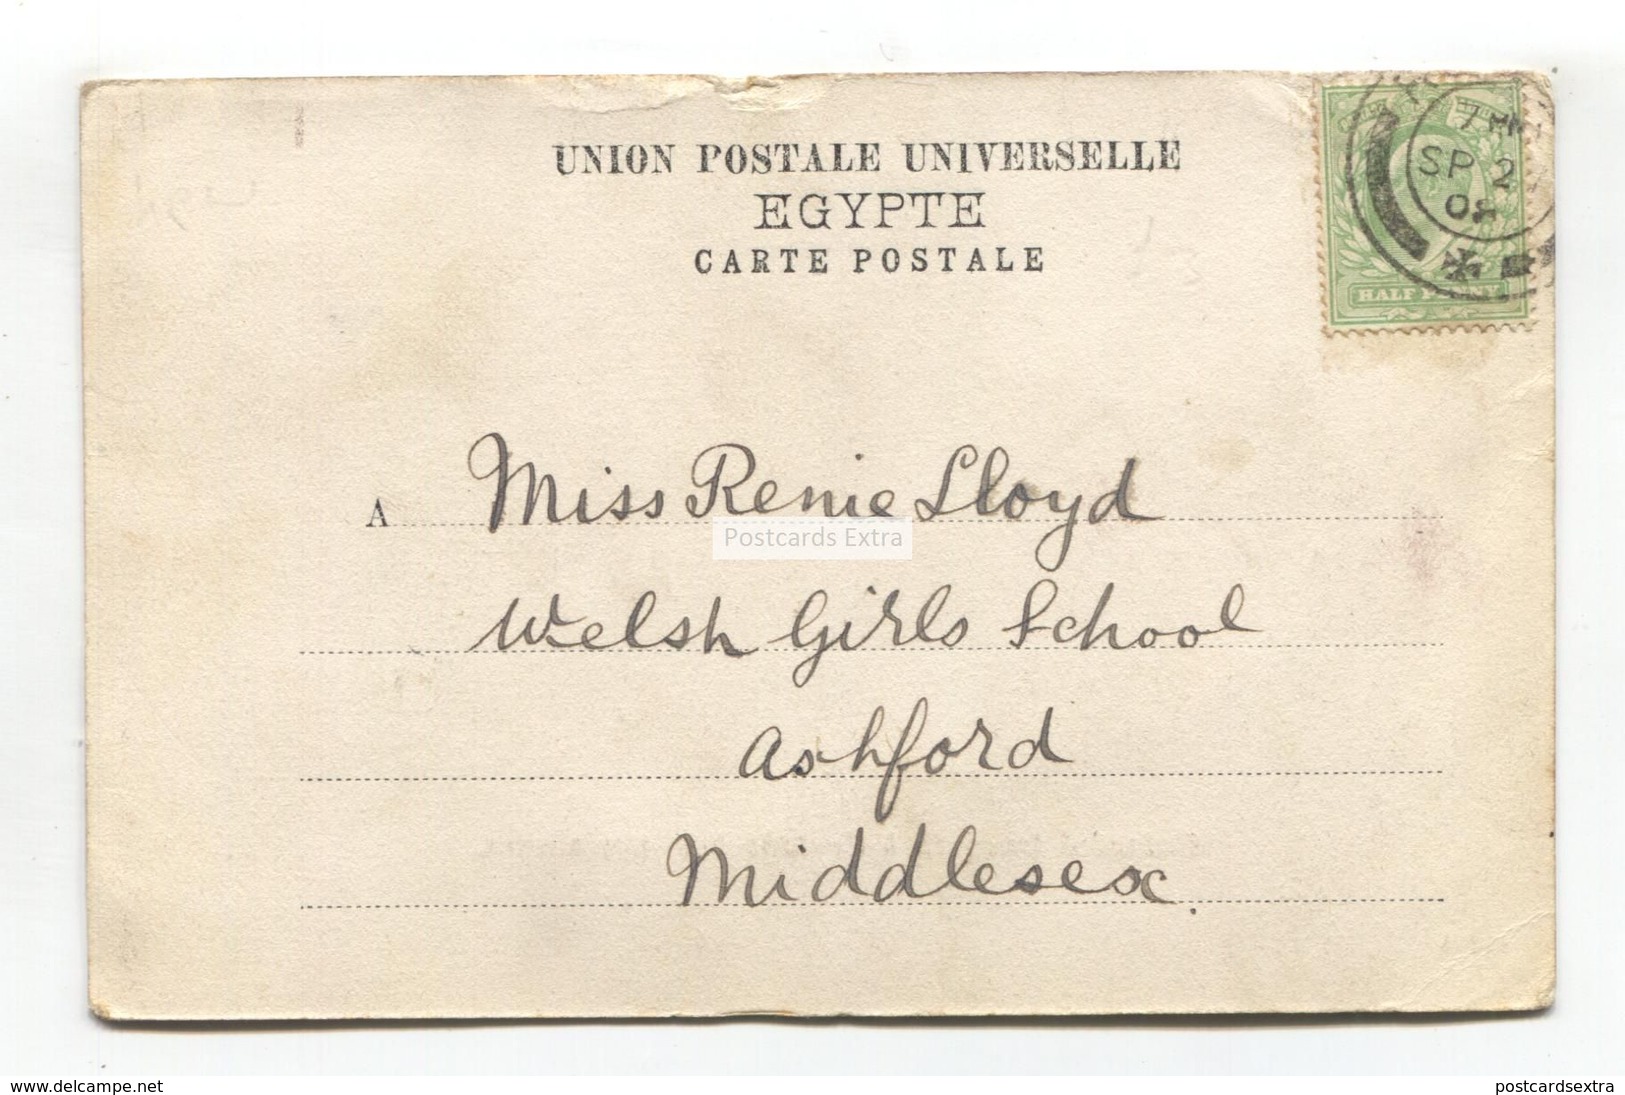 UNION POSTALE UNIVERSELLE
EGYPTE
CARTE POSTALE
SP 2
08
HALF PENNY
A Miss Renie Lloyd
Postcards Extra
Welsh Girls School
Ashford
Middlesex.
www.delcampe.net
postcardsextra